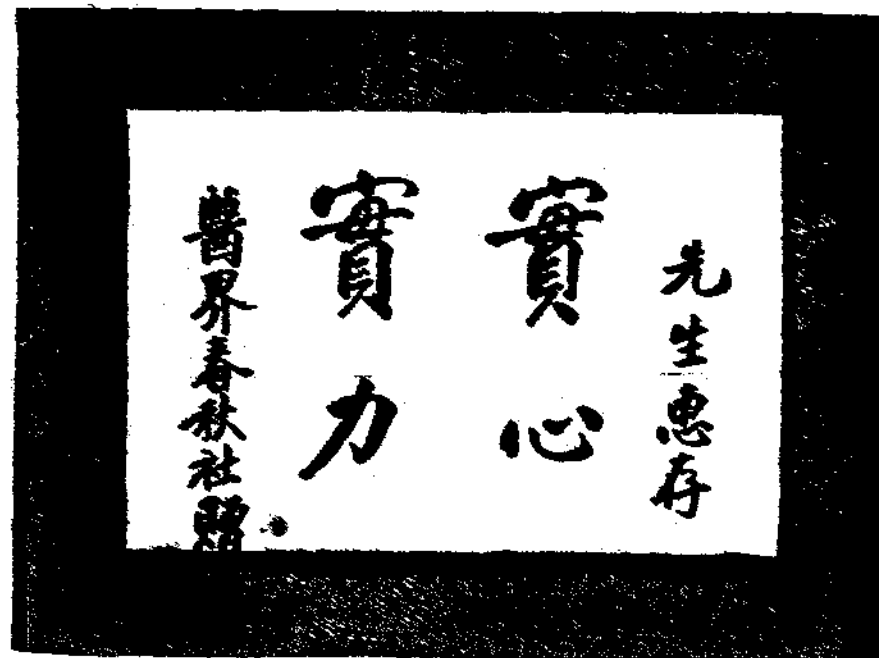 先生惠存
實心
實力
醫界春秋社贈